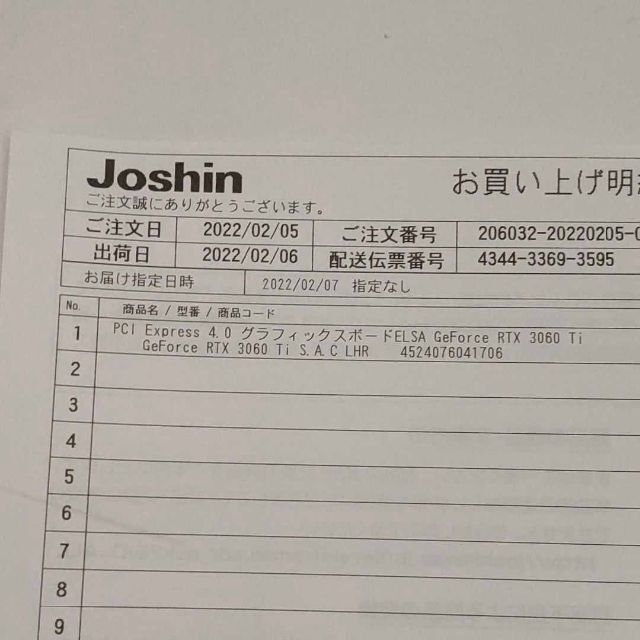 Joshin
お買い上げ明
ご注文誠にありがとうございます。
ご注文日 2022/02/05 ご注文番号 206032-20220205-0
出荷日 2022/02/06 配送伝票番号 4344-3369-3595
お届け指定日時 2022/02/07 指定なし
No. 商品名 / 型番 / 商品コード
1 PCI Express 4.0 グラフィックスボードELSA GeForce RTX 3060 Ti
GeForce RTX 3060 Ti S.A.C LHR 4524076041706
2
3
4
5
6
7
8
9